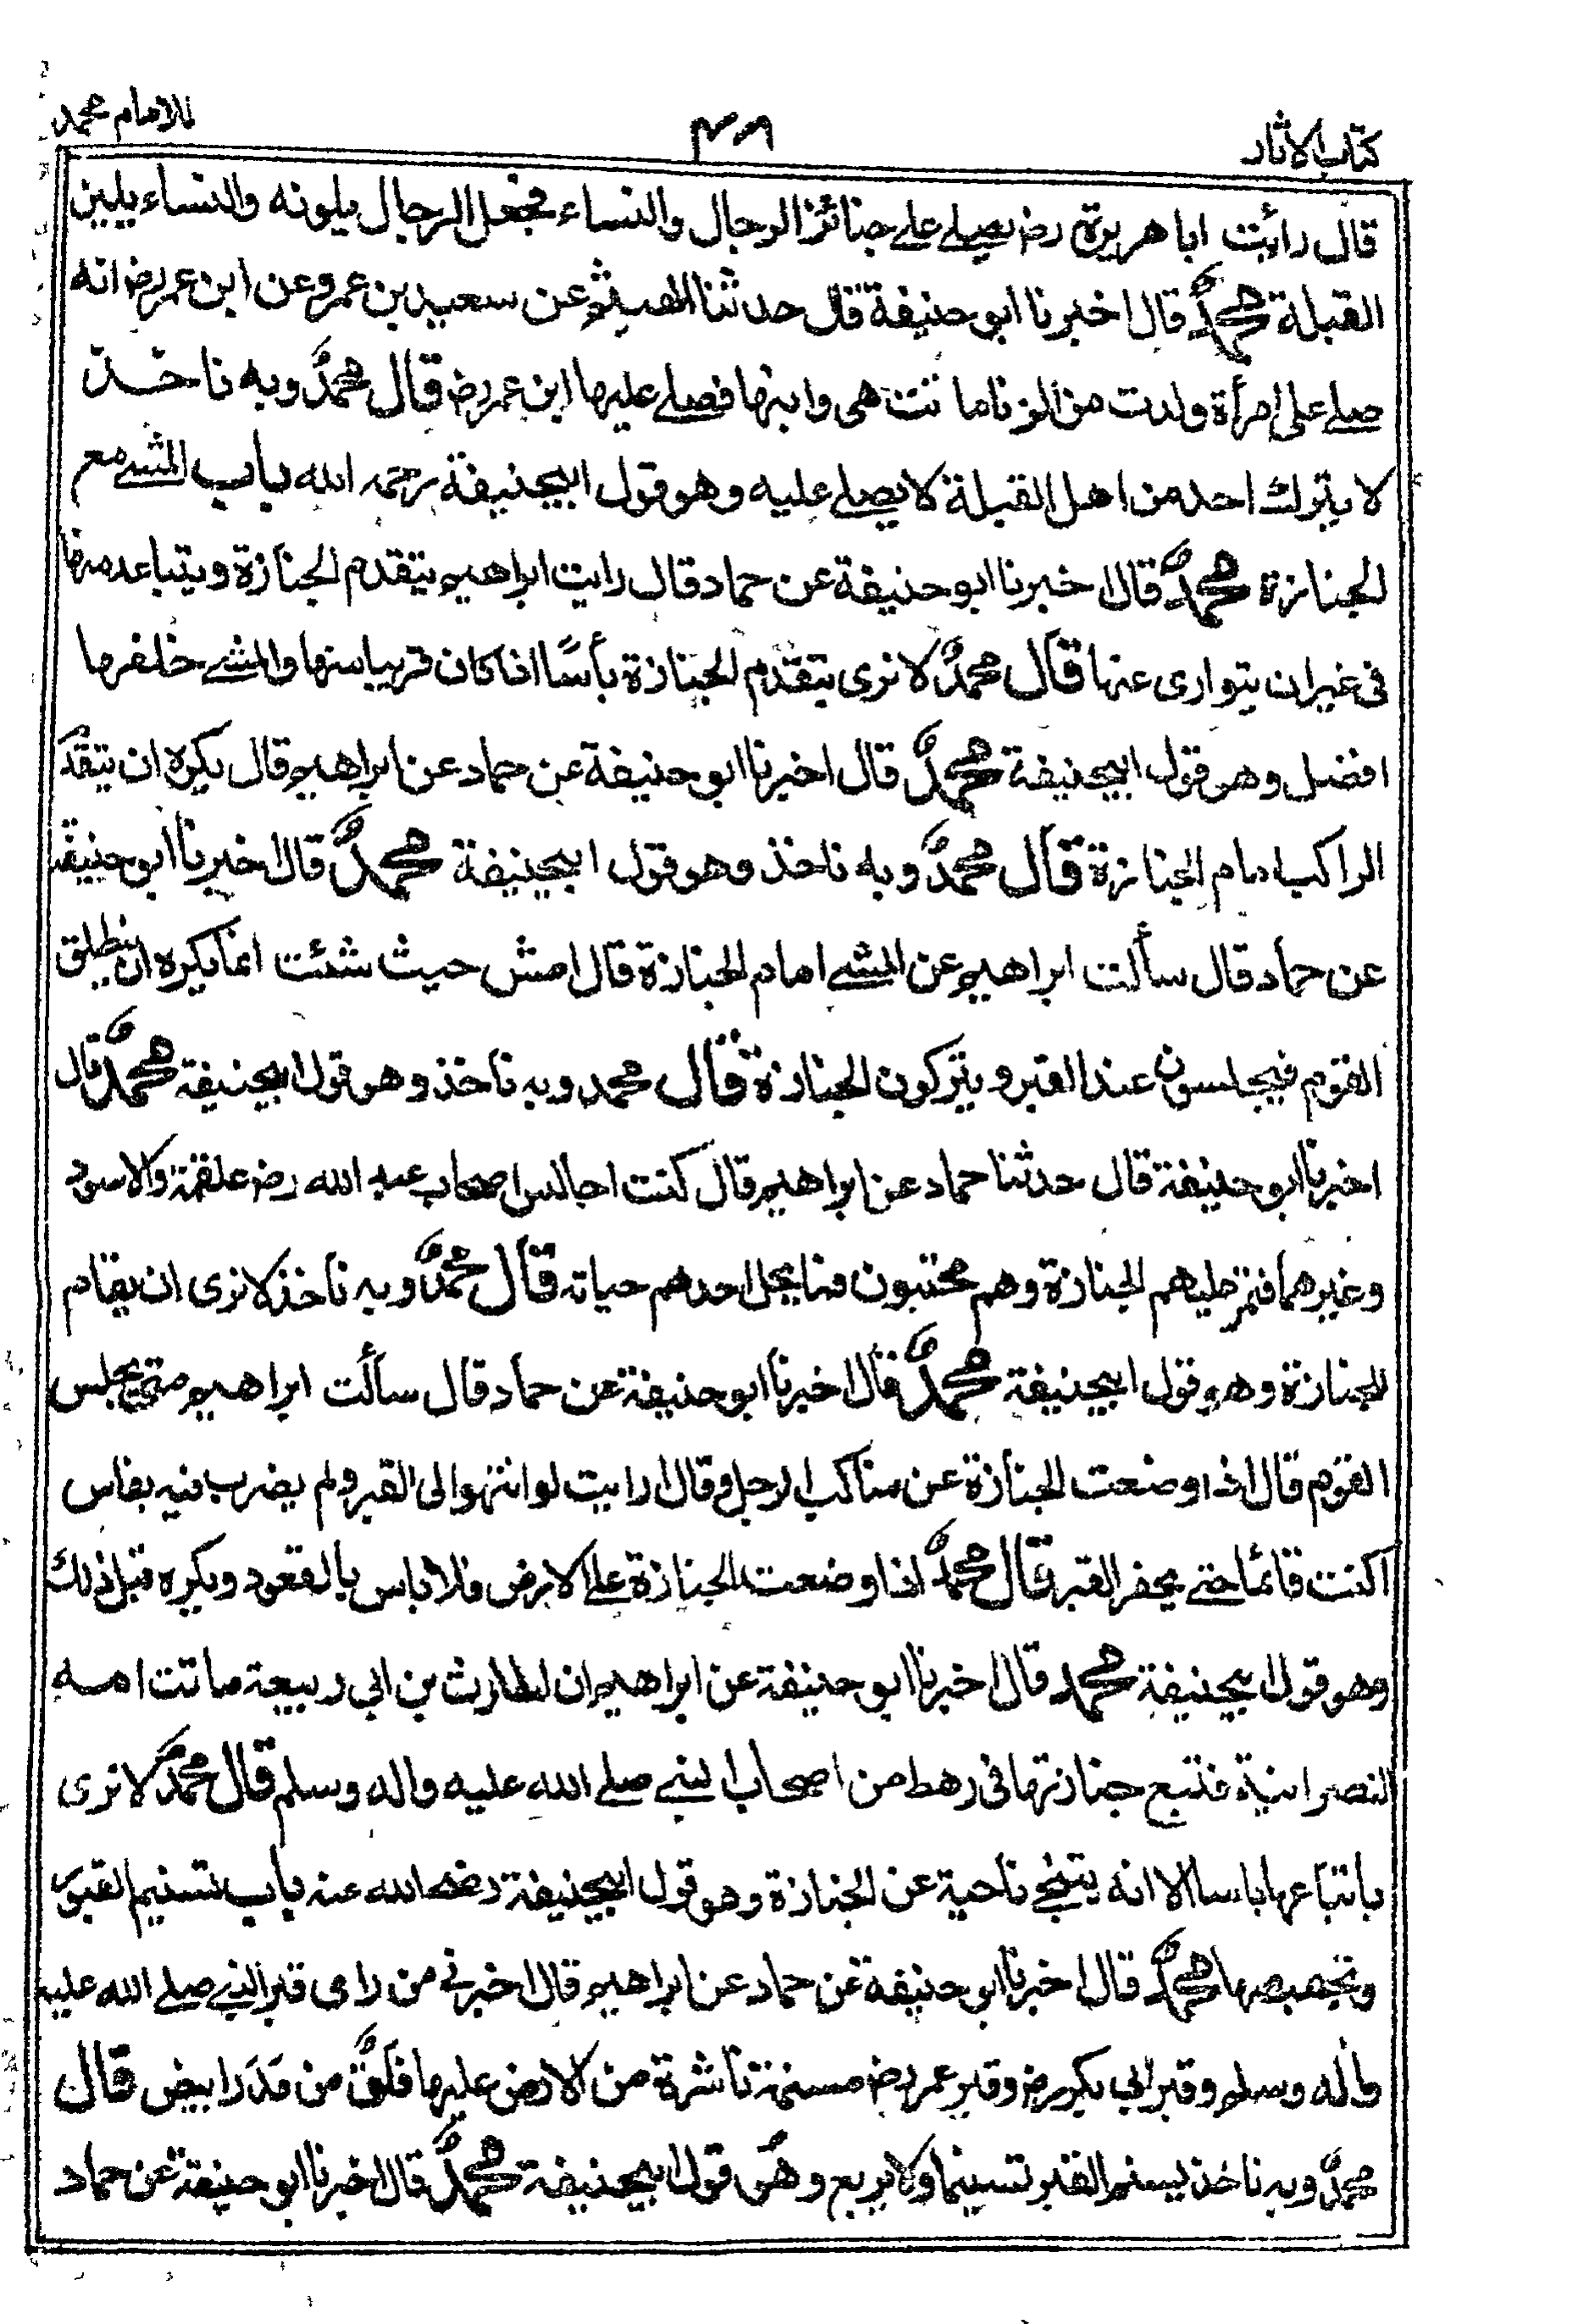 كتاب الاثار
٤٨
للامام محمد
قال رأيت ابا هريرة رض يصلے علے جنائز الرجال والنساء فجعل الرجال يلونه والنساء يلين
القبلة محمدؒ قال اخبرنا ابو حنيفة قال حدثنا الهيثم عن سعيد بن عمرو عن ابن عمر رض انه
صلے على امرأة ولدت من الزنا ماتت هى وابنها فصلے عليها ابن عمر رض قال محمدؒ وبه ناخذ
لا يترك احد من اهل القبلة لا يصلے عليه وهو قول ابيحنيفة رحمه الله باب المشے مع
الجنازة محمدؒ قال اخبرنا ابو حنيفة عن حماد قال رايت ابراهيم يتقدم الجنازة ويتباعد منها
فى غير ان يتوارى عنها قال محمدؒ لا نرى يتقدم الجنازة بأسًا اذا كان قريبا منها والمشے خلفها
افضل وهو قول ابيحنيفة محمدؒ قال اخبرنا ابو حنيفة عن حماد عن ابراهيم قال يكره ان يتقدم
الراكب امام الجنازة قال محمدؒ وبه ناخذ وهو قول ابيحنيفة محمدؒ قال اخبرنا ابو حنيفة
عن حماد قال سألت ابراهيم عن المشے امام الجنازة قال امش حيث شئت انما يكره ان ينطلق
القوم فيجلسون عند القبر ويتركون الجنازة قال محمد وبه ناخذ وهو قول ابيحنيفة محمدؒ قال
اخبرنا ابو حنيفة قال حدثنا حماد عن ابراهيم قال كنت اجالس اصحاب عبد الله رض علقمة والاسود
وغيرهما فتمر عليهم الجنازة وهم محتبون فما يحل احدهم حباته قال محمدؒ وبه ناخذ لا نرى ان يقام
للجنازة وهو قول ابيحنيفة محمدؒ قال اخبرنا ابو حنيفة عن حماد قال سألت ابراهيم متى يجلس
القوم قال اذا وضعت الجنازة عن مناكب الرجل وقال ارايت لو انتهوا الى القبر ولم يضرب فيه بفاس
اكنت قائما حتے يحفر القبر قال محمدؒ اذا وضعت الجنازة علے الارض فلا باس بالقعود ويكره قبل ذلك
وهو قول ابيحنيفة محمد قال اخبرنا ابو حنيفة عن ابراهيم ان الحارث بن ابي ربيعة ماتت امه
النصرانية فتبع جنازتها فى رهط من اصحاب النبے صلے الله عليه واله وسلم قال محمدؒ لا نرى
باتباعها باسا الا انه يتنحے ناحية عن الجنازة وهو قول ابيحنيفة رضے الله عنه باب تسنيم القبور
وتجصيصها محمدؒ قال اخبرنا ابو حنيفة عن حماد عن ابراهيم قال اخبرنے من راى قبر النبے صلے الله عليه
واله وسلم وقبر ابي بكر رض وقبر عمر رض مسنمة ناشزة من الارض عليها فلق من مدر ابيض قال
محمدؒ وبه ناخذ يسنم القبر تسنيما ولا يربع وهو قول ابيحنيفة محمدؒ قال اخبرنا ابو حنيفة عن حماد